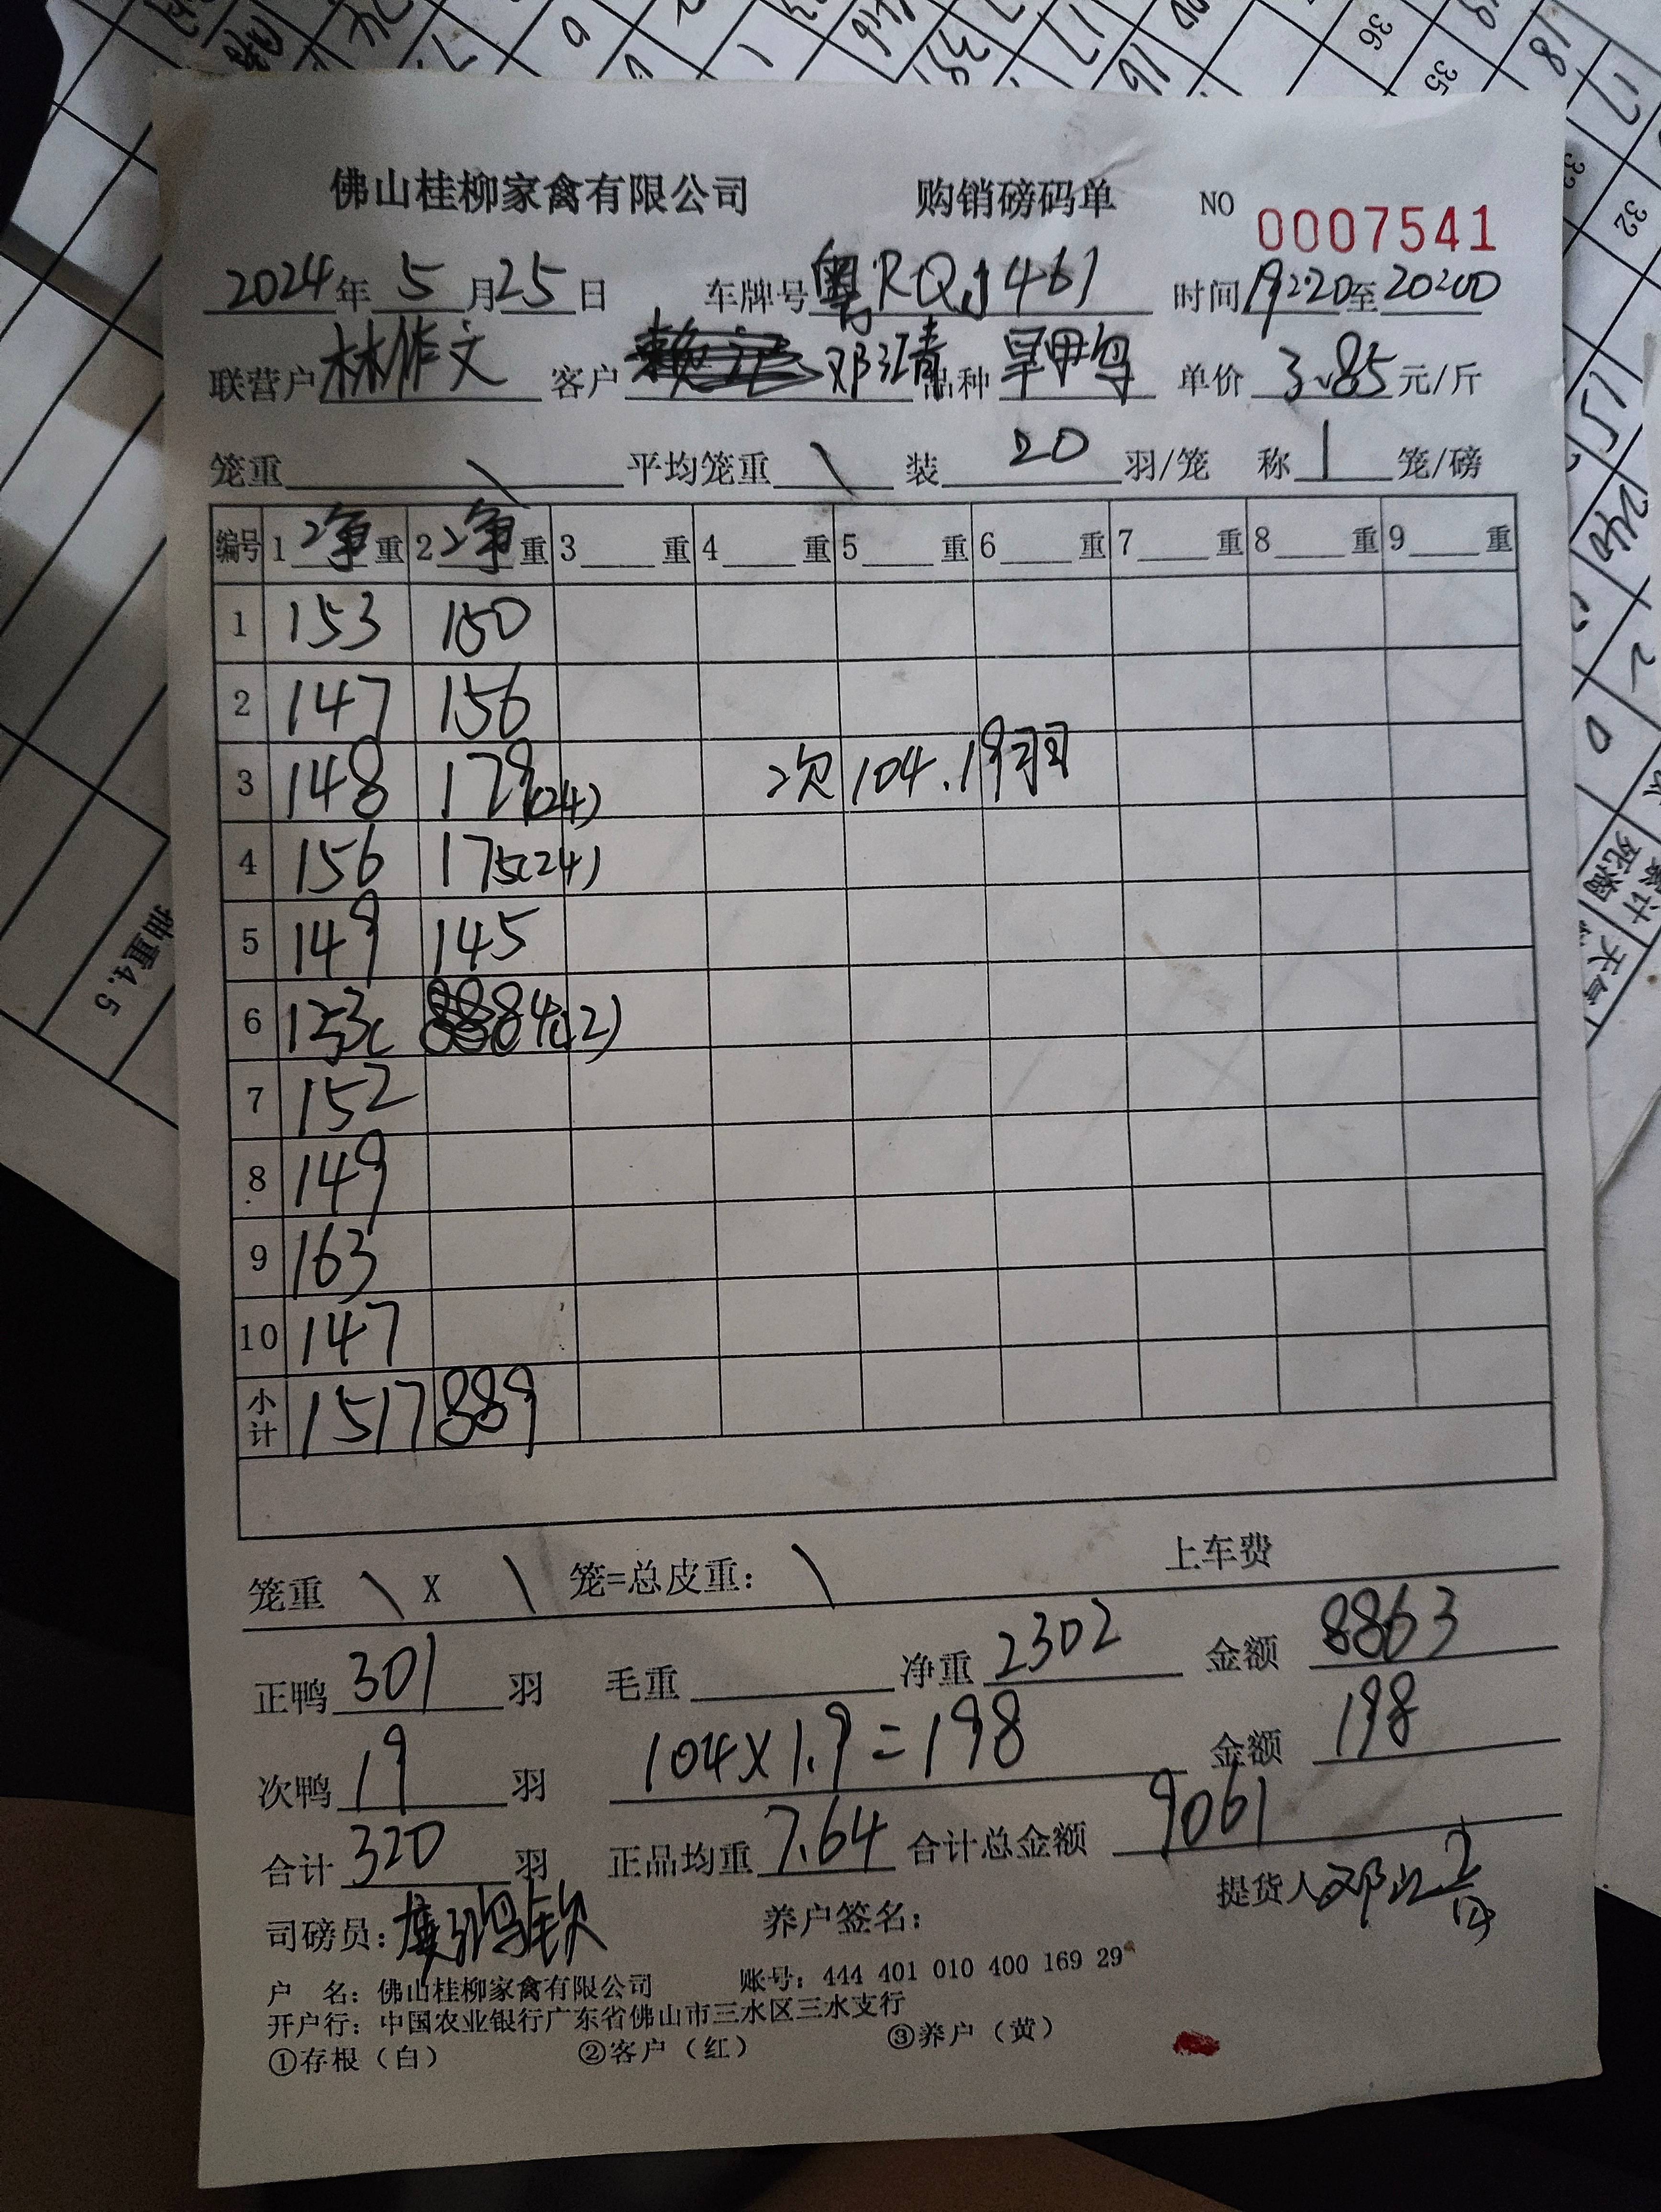 佛山桂柳家禽有限公司 购销磅码单 NO 0007541
2024年5月25日 车牌号粤RQJ461 时间19:20至20:00
联营户林作文 客户 邓江青 品种 单价3.85元/斤
笼重\ 平均笼重\ 装20羽/笼 称1笼/磅
编号 1净重 2净重 3重 4重 5重 6重 7重 8重 9重
1 153 150
2 147 156
3 148 179(24) 次104.19羽
4 156 175(24)
5 149 145
6 153 84(12)
7 152
8 149
9 163
10 147
小计 1517 889
笼重\X\笼=总皮重:\ 上车费
正鸭301羽 毛重 净重2302 金额8863
次鸭19羽 104X1.9=198 金额198
合计320羽 正品均重7.64 合计总金额9061
司磅员: 养户签名: 提货人
户 名:佛山桂柳家禽有限公司 账号:444 401 010 400 169 29
开户行:中国农业银行广东省佛山市三水区三水支行
①存根(白) ②客户(红) ③养户(黄)
36
35
18
17
32
240
抽重4.5
累计
死淘